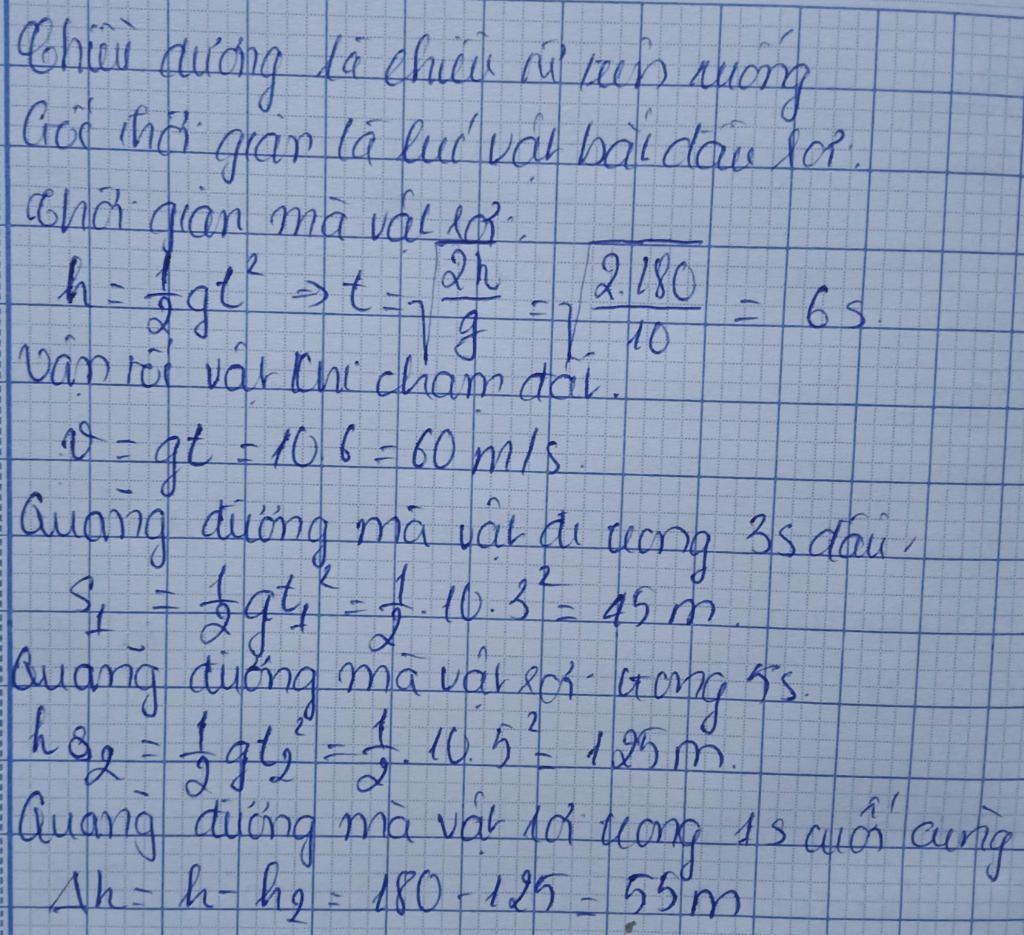 Chiều dương là chiều từ trên xuống
Gốc thời gian là lúc vật bắt đầu rơi.
Thời gian mà vật rơi:
h = 1/2 gt² => t = √(2h/g) = √(2.180/10) = 6s.
Vận tốc vật khi chạm đất.
v = gt = 10.6 = 60 m/s.
Quãng đường mà vật đi trong 3s đầu,
S₁ = 1/2 gt₁² = 1/2 . 10.3² = 45 m.
Quãng đường mà vật rơi trong 5s.
h₂ = 1/2 gt₂² = 1/2 . 10.5² = 125 m.
Quãng đường mà vật rơi trong 1s cuối cùng
Δh = h - h₂ = 180 - 125 = 55 m